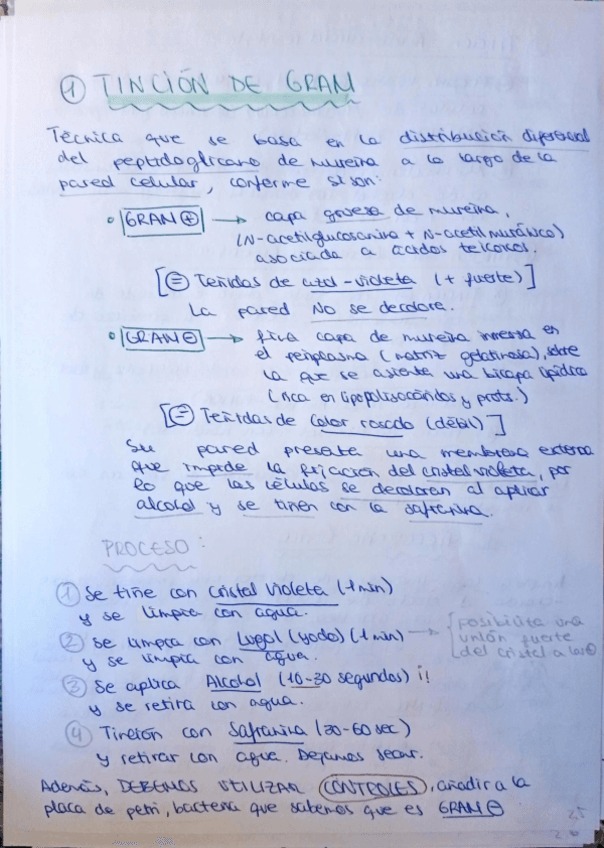 ① TINCIÓN DE GRAM
Técnica que se basa en la distribución diferencial
del peptidoglicano de mureína a lo largo de la
pared celular, conforme si son:
• GRAM ⊕ → capa gruesa de mureína,
(N-acetilglucosamina + N-acetilmurámico)
asociada a ácidos teicoicos.
[⊜ Teñidas de azul-violeta (+ fuerte)]
La pared NO se decolora.
• GRAM ⊖ → fina capa de mureína inmersa en
el periplasma (matriz gelatinosa), sobre
la que se asienta una bicapa lipídica
(rica en lipopolisacáridos y prots.)
[⊜ Teñidas de color rosado (débil)]
Su pared presenta una membrana externa
que impide la fijación del cristal violeta, por
lo que las células se decoloran al aplicar
alcohol y se tiñen con la safranina.
PROCESO:
① Se tiñe con cristal violeta (1 min)
y se limpia con agua.
② Se limpia con Lugol (yodo) (1 min) → { posibilita una
y se limpia con agua. unión fuerte
del cristal a las ⊕
③ Se aplica Alcohol (10-30 segundos) ¡!
y se retira con agua.
④ Tinción con Safranina (20-60 sec)
y retirar con agua. Dejamos secar.
Además, DEBEMOS UTILIZAR CONTROLES, añadir a la
placa de petri, bacteria que sabemos que es GRAM ⊖